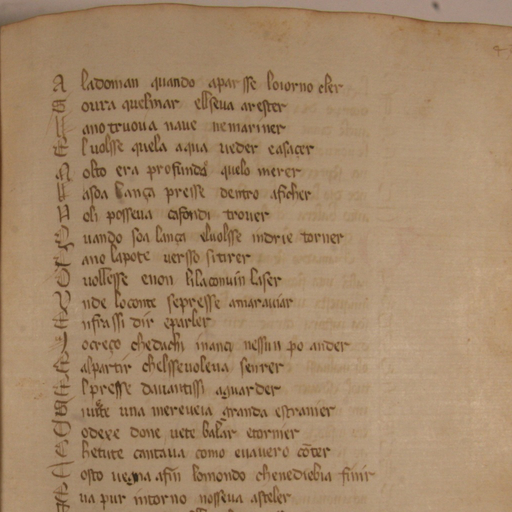 A ladoman quando aparsse loiorno cler
S oura quelmar ellseua arester
ano truoua naue nemariner
E luolsse quela aqua ueder easaçer
M olto era profunda quelo merer
asoa lança presse dentro aficher
oli posseua cafondi trouer
Q uando soa lança eluolsse indrie torner
ano lapote uersso si tirer
uollesse enon lilaconuin laser
nde loconte sepresse amarauiar
nfra ssi dir eparler
ocreço chedachi inançi nessun po ander
alpartir chelsseuoleua seurer
l presse dauantissi aguarder
una mereueia granda estranier
odexe done uete balar etornier
hetute cantaua como euauero conter
osto uegna afin lomondo chenediebia finir
ua pur intorno nosseua asteler